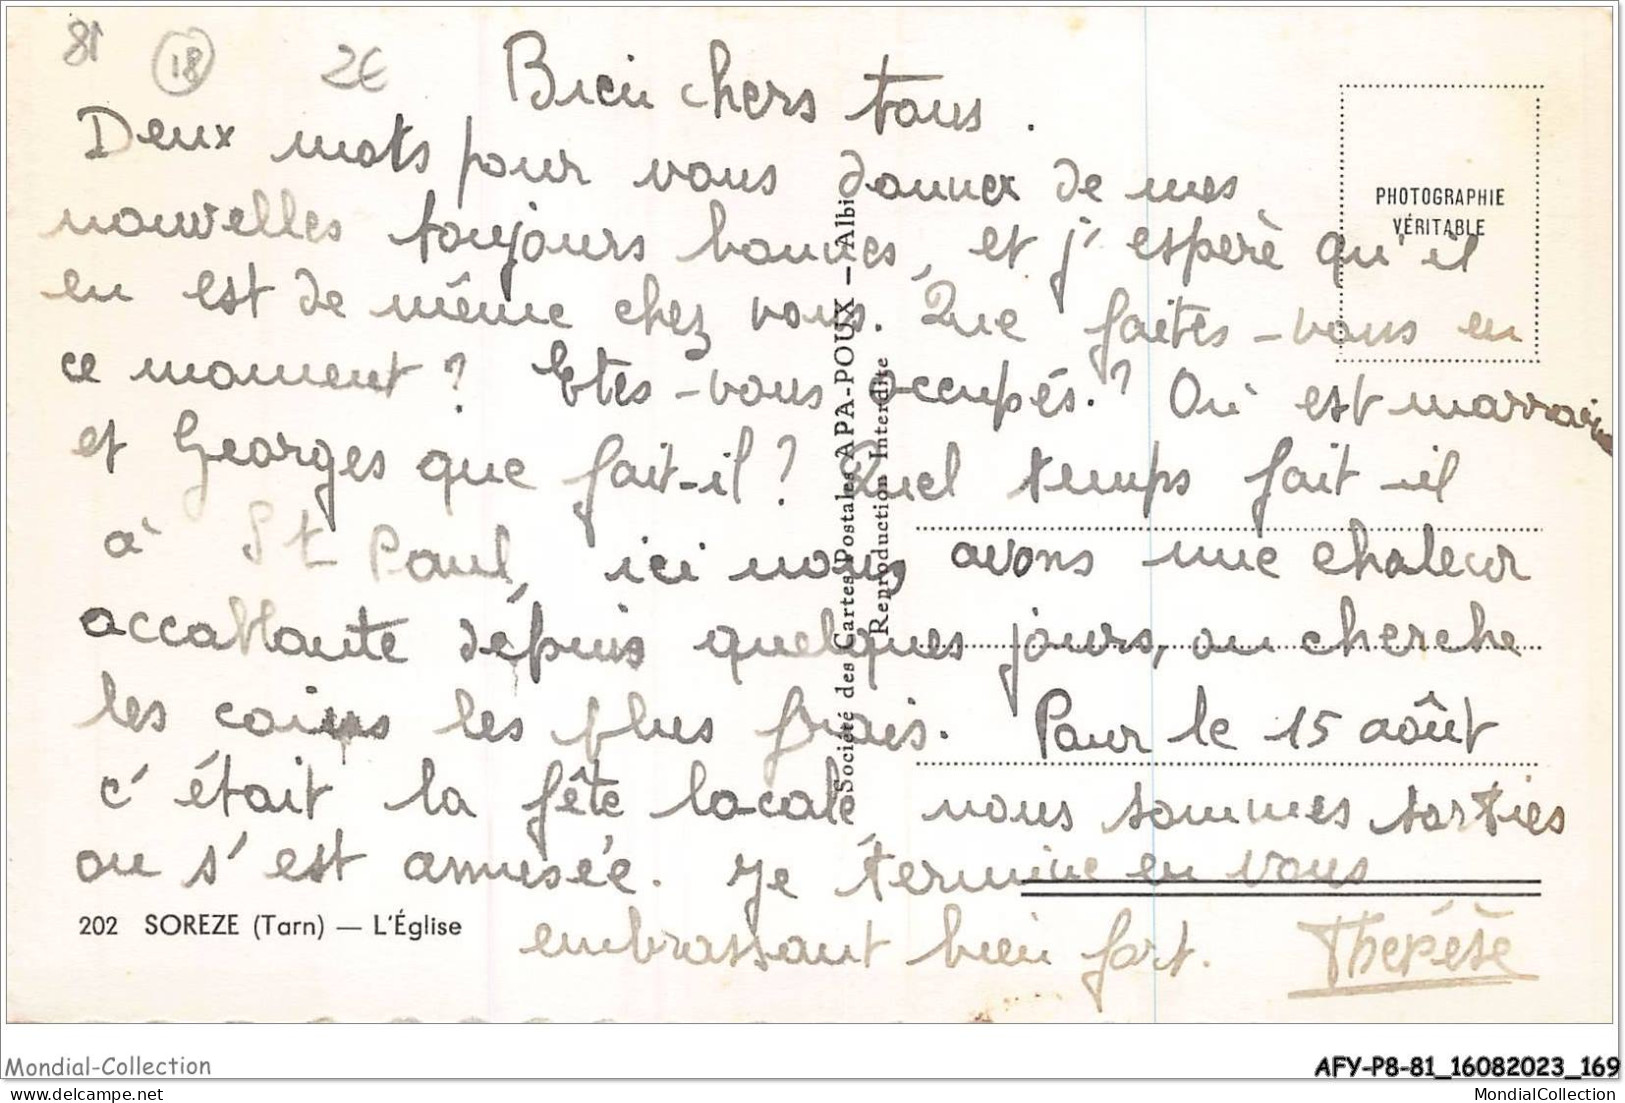 81 18 2€
Bien chers tous.
Deux mots pour vous donner de mes
nouvelles toujours bonnes, et j'espère qu'il
en est de même chez vous. Que faites-vous en
ce moment ? Etes-vous occupés ? Où est marrain
et Georges que fait-il ? Quel temps fait-il
à St Paul, ici nous avons une chaleur
accablante dépuis quelques jours, on cherche
les coins les plus frais. Pour le 15 août
c'était la fête locale, nous sommes sorties
on s'est amusée. Je termine en vous
embrassant bien fort. Thérèse
PHOTOGRAPHIE
VÉRITABLE
Société des Cartes Postales APA-POUX - Albi
Reproduction Interdite
202 SOREZE (Tarn) — L'Église
Mondial-Collection
AFY-P8-81_16082023_169
delcampe.net
MondialCollection